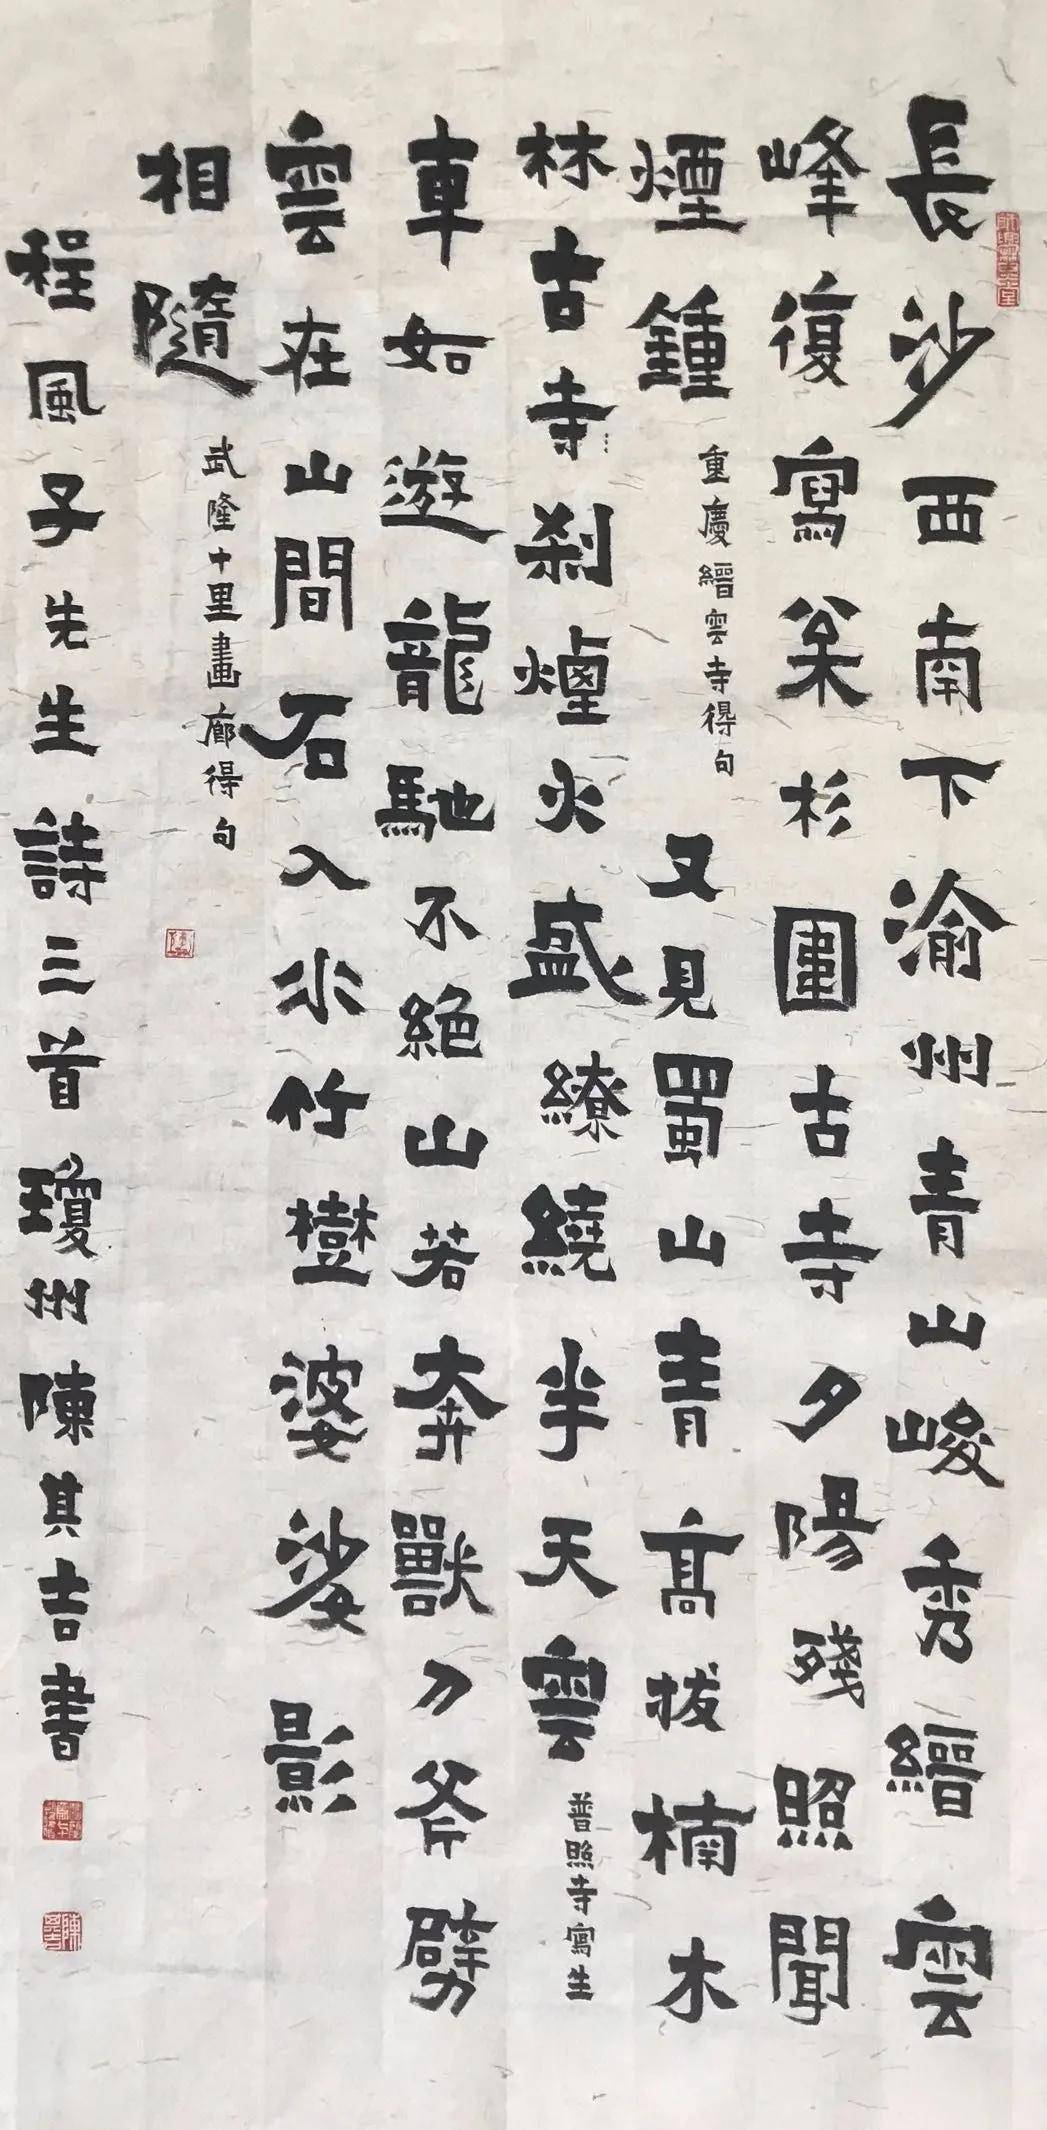 長沙西南下渝州青山峻秀縉雲
峰復寫柔杉圍古寺夕陽殘照聞
煙鍾
重慶縉雲寺得句
又見蜀山青高拔楠木
林古寺剎煙火盛繚繞半天雲
普照寺寫生
車如遊龍馳不絕山若奔獸刀斧劈
雲在山間石入水竹樹婆娑影
相隨
武隆十里畫廊得句
程風子先生詩三首瓊州陳其吉書